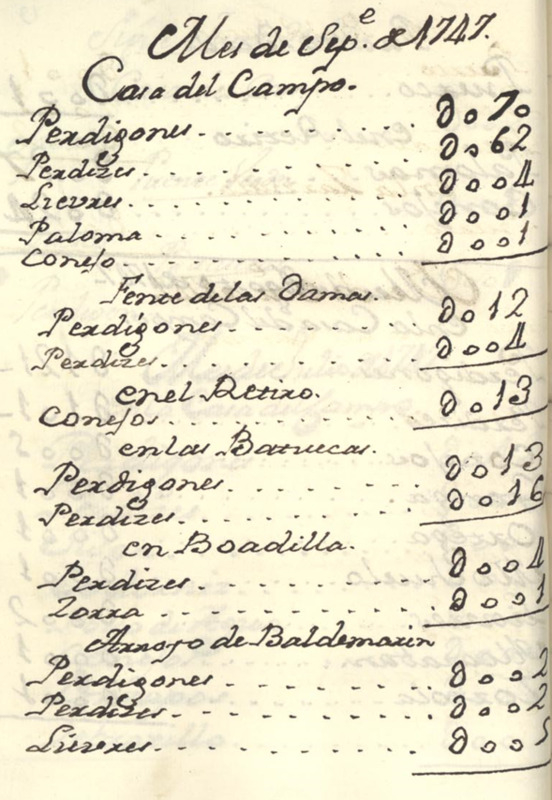 Mes de Sepe. de 1747.
Casa del Campo.
Perdigones 0070
Perdizes 0062
Lievres 0004
Paloma 0001
Conejo 0001
Fente de las Damas.
Perdigones 0012
Perdizes 0004
en el Retiro.
Conejos 0013
en las Batuecas.
Perdigones 0013
Perdizes 0016
en Boadilla.
Perdizes 0004
Zorra 0001
Arroyo de Baldemarin
Perdigones 0002
Perdizes 0002
Lievres 0005